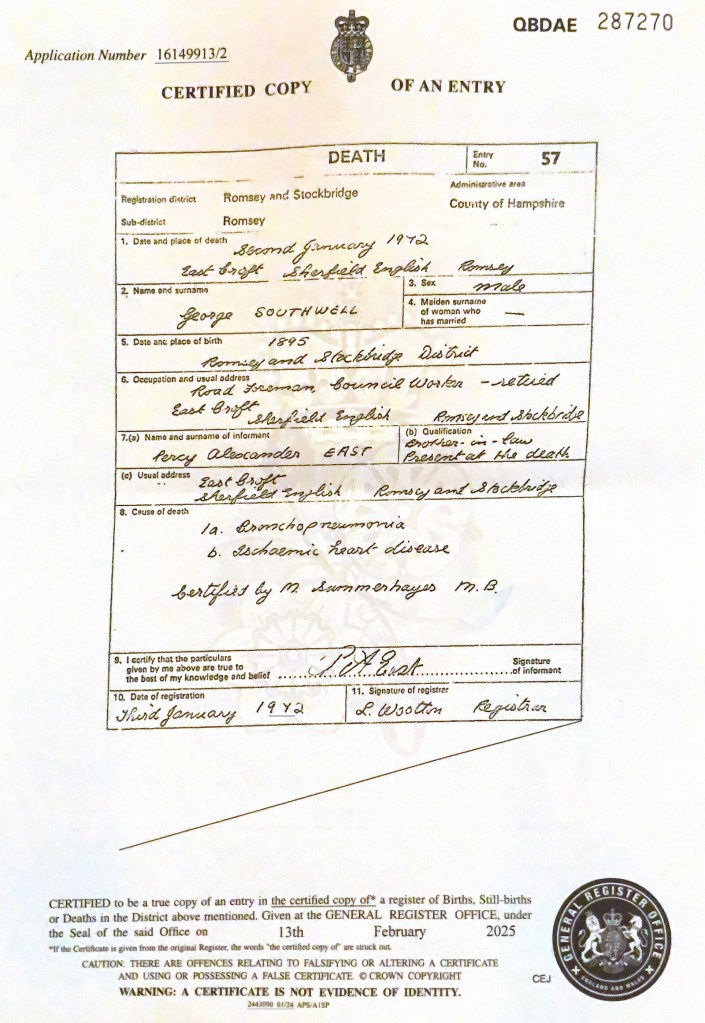 QBDAE 287270
Application Number 16149913/2
CERTIFIED COPY OF AN ENTRY
DEATH
Entry No. 57
Registration district Romsey and Stockbridge
Administrative area
Sub-district Romsey
County of Hampshire
1. Date and place of death Second January 1972
East Croft Sherfield English Romsey
2. Name and surname
George SOUTHWELL
3. Sex Male
4. Maiden surname of woman who has married —
5. Date and place of birth 1895
Romsey and Stockbridge District
6. Occupation and usual address
Road Foreman Council Worker - retired
East Croft Sherfield English Romsey and Stockbridge
7.(a) Name and surname of informant
Percy Alexander EAST
(b) Qualification
Brother-in-law
Present at the death
(c) Usual address East Croft
Sherfield English Romsey and Stockbridge
8. Cause of death
1a. Bronchopneumonia
b. Ischaemic heart disease
Certified by M. Summerhayes M.B.
9. I certify that the particulars
given by me above are true to
the best of my knowledge and belief P A East Signature of informant
10. Date of registration
Third January 1972
11. Signature of registrar
L. Wootton Registrar
CERTIFIED to be a true copy of an entry in the certified copy of* a register of Births, Still-births
or Deaths in the District above mentioned. Given at the GENERAL REGISTER OFFICE, under
the Seal of the said Office on 13th February 2025
*If the Certificate is given from the original Register, the words "the certified copy of" are struck out.
CAUTION: THERE ARE OFFENCES RELATING TO FALSIFYING OR ALTERING A CERTIFICATE
AND USING OR POSSESSING A FALSE CERTIFICATE. © CROWN COPYRIGHT
CEJ
WARNING: A CERTIFICATE IS NOT EVIDENCE OF IDENTITY.
2443090 01/24 APS/A1SP
GENERAL REGISTER OFFICE
ENGLAND AND WALES